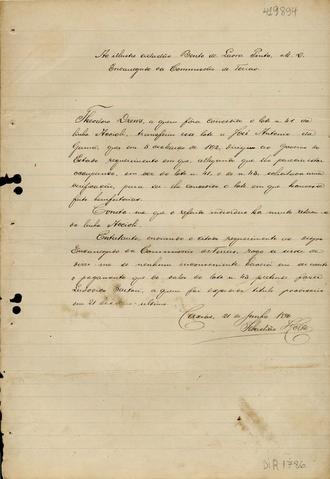 419894
Ao illustre cidadão Bento de Lavra Pinto, M. D.
Encarregado da Commissão de Terras
Theodoro Drews, a quem fora concedido o lote n. 41 da
linha Accioli, transferiu esse lote a José Antonio da
Gama, que em 5 de de 1892, dirigiu ao Governo do
Estado requerimento em que, allegando que lhe parecia estar
occupando, em vez do lote n. 41, o de n. 43, solicitava uma
verificação, para ser-lhe concedido o lote em que houvesse
feito bemfeitorias.
Consta-me que o referido individuo ha muito retirou-se
da linha Accioli.
Entretanto, enviando o citado requerimento ao digno
Encarregado da Commissão de Terras, rogo a de
dizer-me se nenhum inconveniente haverá em
o pagamento que do valor do lote n. 43 pretende fazer
Ludovico, a quem foi expedido titulo provisorio
em 21 de ultimo.
Caxias, 21 de Junho 1896
DIR 1786